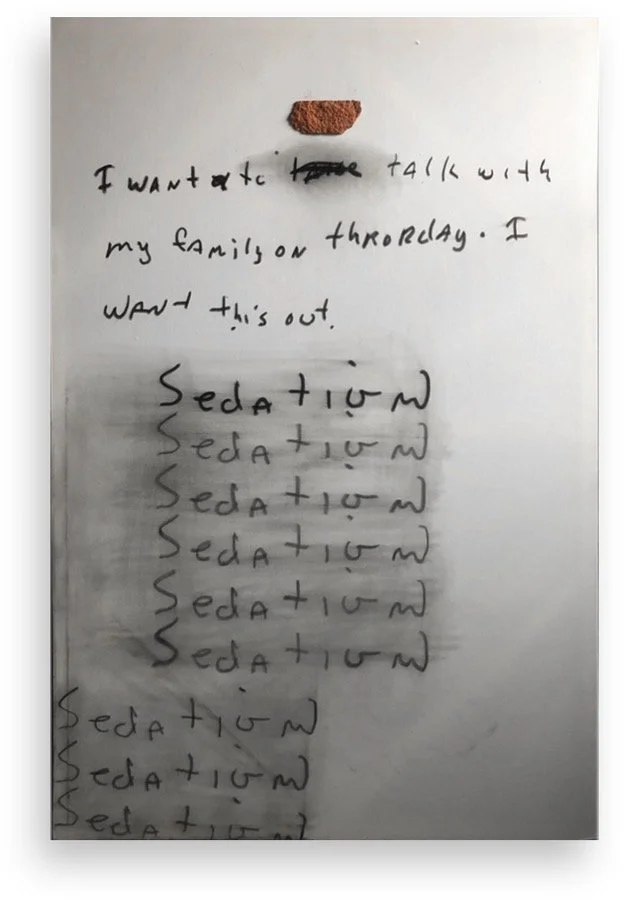 I WANt to tAlk with
my fAmily ON thRORdAy. I
WANt this out.
SedAtioN
SedAtioN
SedAtioN
SedAtioN
SedAtioN
SedAtioN
SedAtioN
SedAtioN
SedAtioN